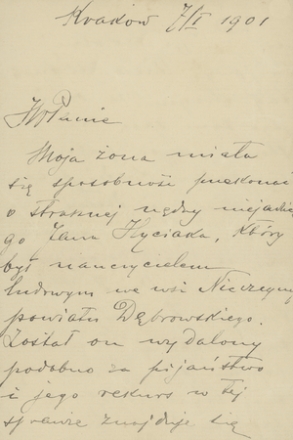 Kraków 7/I 1901
JWPanie
Moja żona miała
się sposobność przekonać
o strasznej nędzy niejakie
go Jana Hyciaka, który
był nauczycielem
ludowym we wsi Nieczajny
powiatu Dąbrowskiego.
Został on wydalony
podobno za pijaństwo
i jego rekurs w tej
sprawie znajduje się